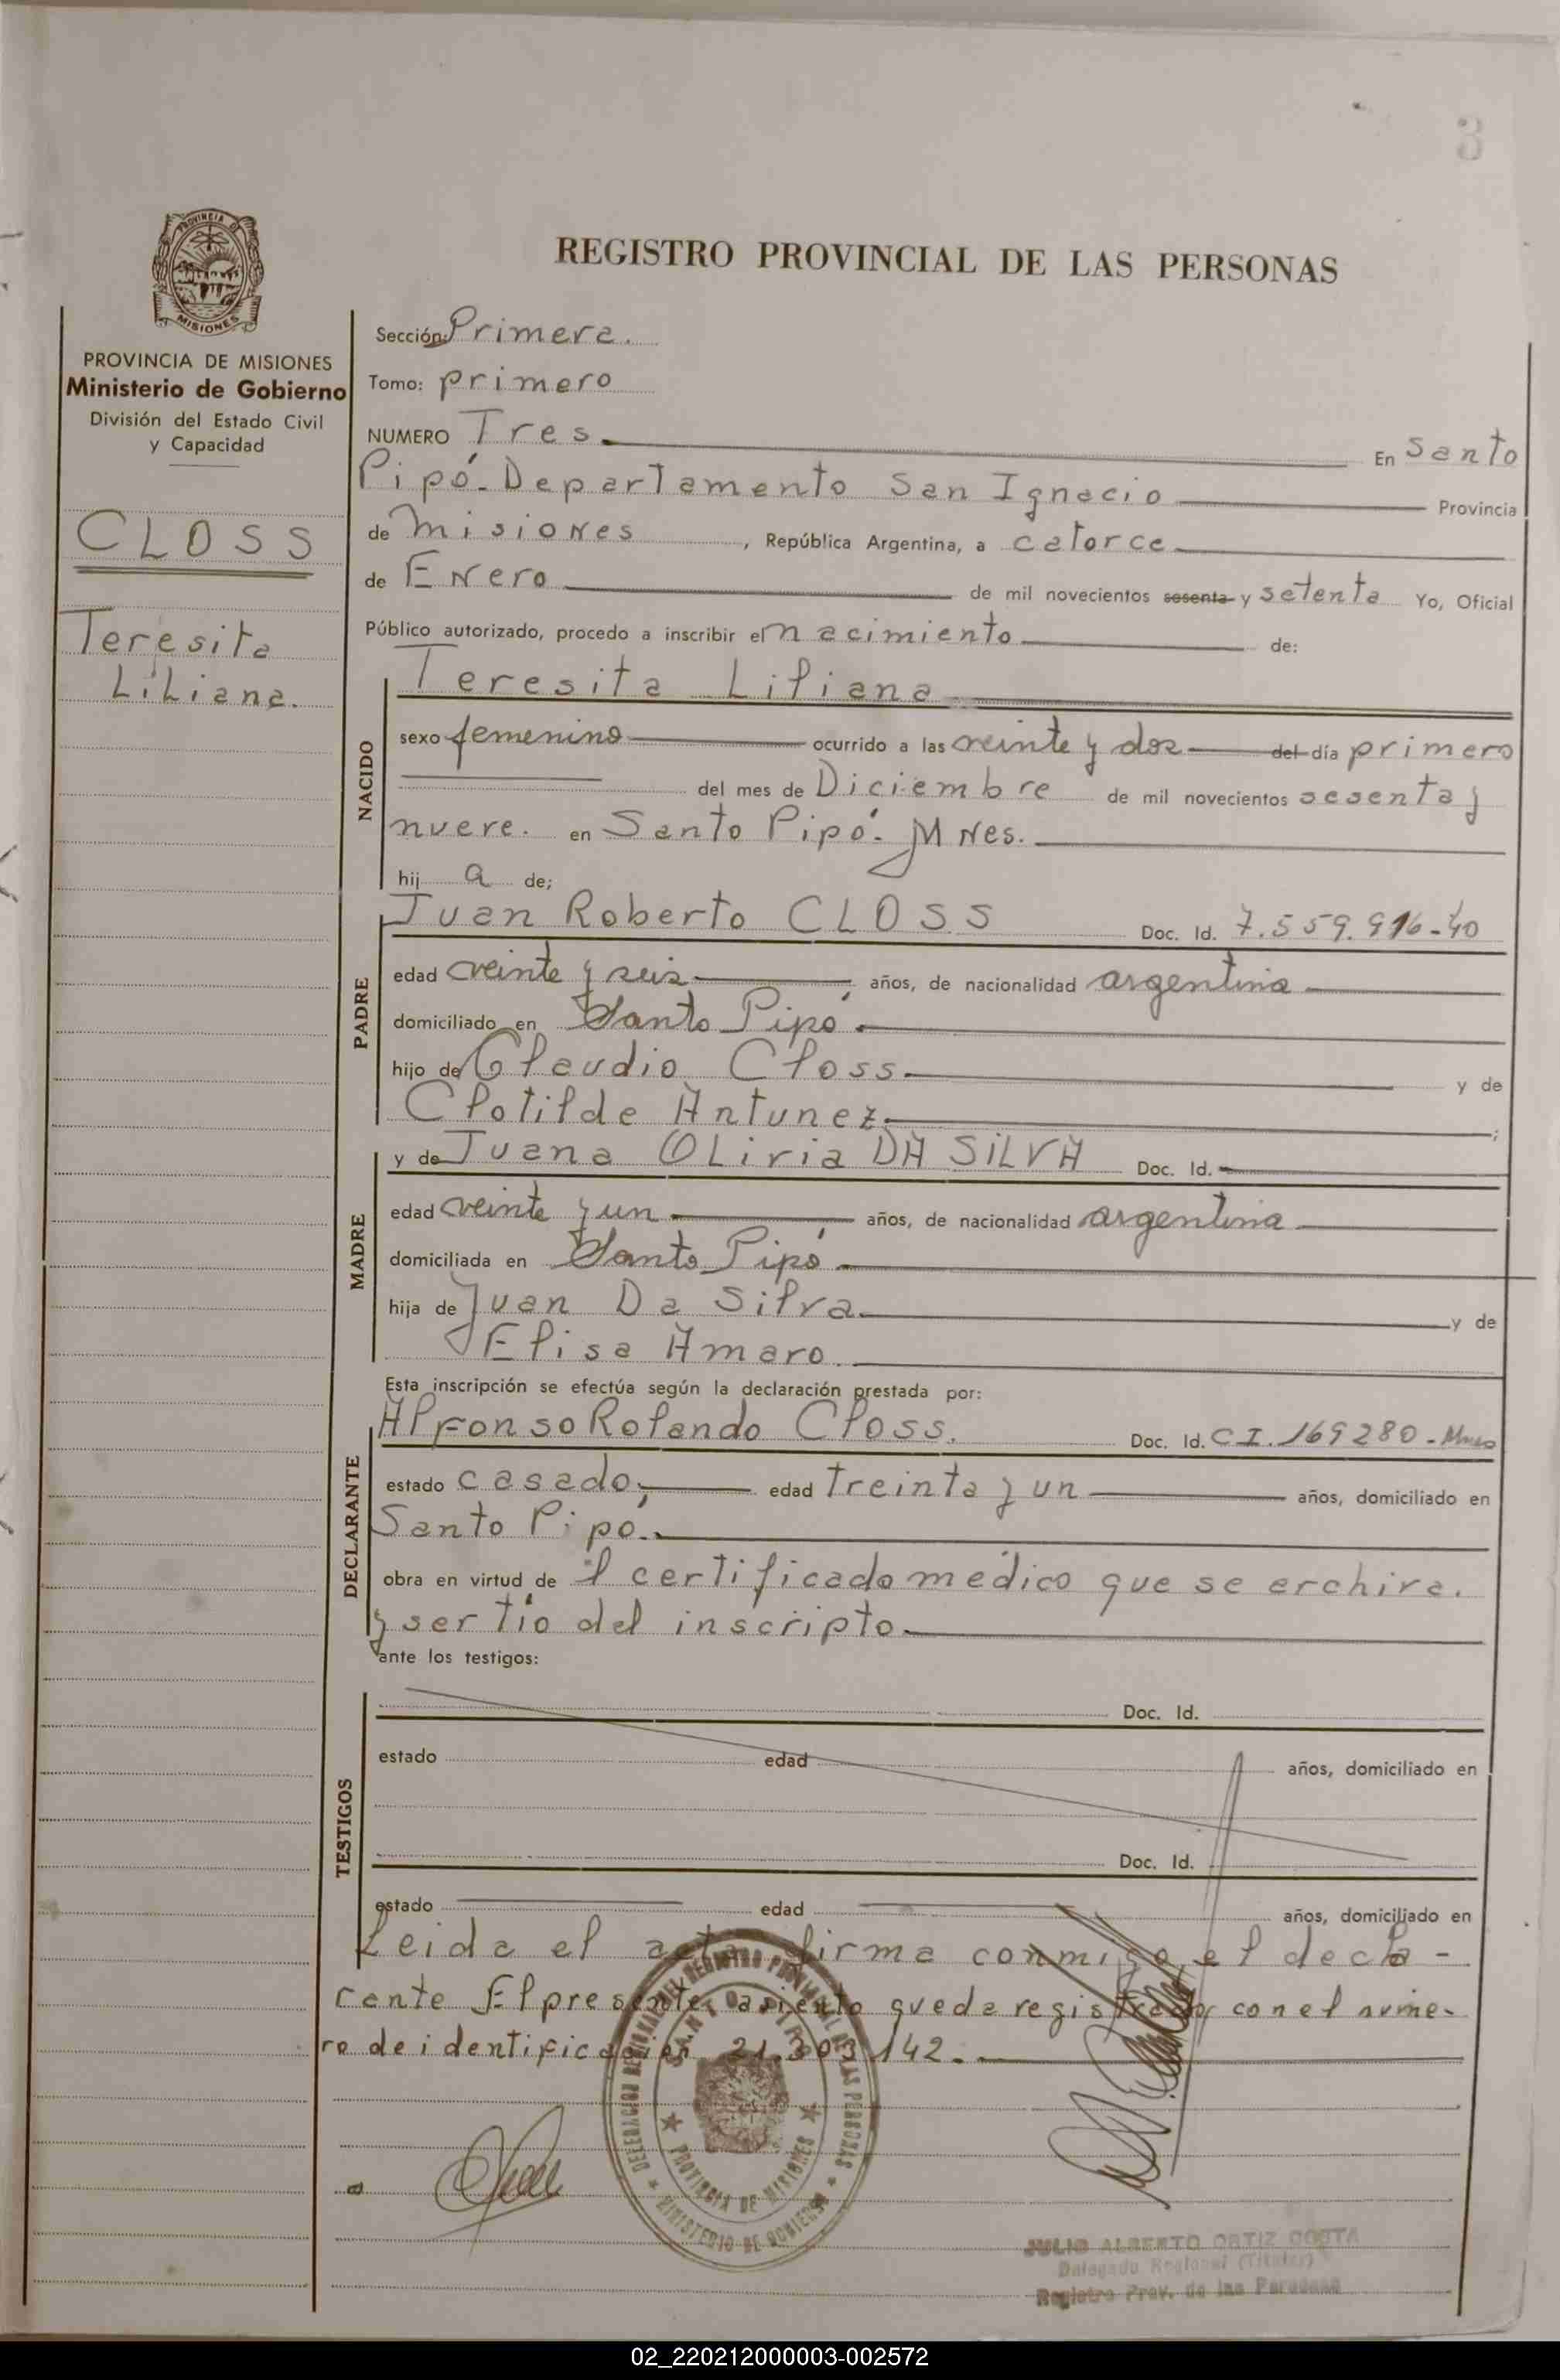 3
PROVINCIA DE
MISIONES
REGISTRO PROVINCIAL DE LAS PERSONAS
PROVINCIA DE MISIONES
Ministerio de Gobierno
División del Estado Civil
y Capacidad
CLOSS
Teresita
Liliana.
Sección: Primera.
Tomo: primero
NUMERO Tres. En Santo
Pipó - Departamento San Ignacio Provincia
de Misiones, República Argentina, a catorce
de Enero de mil novecientos sesenta y setenta Yo, Oficial
Público autorizado, procedo a inscribir el nacimiento de:
NACIDO
Teresita Liliana
sexo femenino ocurrido a las veinte y dos del día primero
del mes de Diciembre de mil novecientos sesenta y
nueve. en Santo Pipó - Mnes.
hij a de;
PADRE
Juan Roberto CLOSS Doc. Id. 7.559.916-40
edad veinte y seis años, de nacionalidad argentina
domiciliado en Santo Pipó.
hijo de Claudio Closs. y de
Clotilde Antunez ;
MADRE
y de Juana Oliria DA SILVA Doc. Id.
edad veinte y un años, de nacionalidad argentina
domiciliada en Santo Pipó
hija de Juan Da Silva y de
Elisa Amaro.
Esta inscripción se efectúa según la declaración prestada por:
DECLARANTE
Alfonso Rolando Closs. Doc. Id. C I. 169280 - Mnes
estado casado, edad treinta y un años, domiciliado en
Santo Pipó.
obra en virtud de l certificado médico que se archiva.
y ser tío del inscripto
ante los testigos:
TESTIGOS
Doc. Id.
estado edad años, domiciliado en
Doc. Id.
estado edad años, domiciliado en
Leida el acta firma conmigo, el decla-
rante El presente asiento queda registrado con el nume-
ro de identificación 21.303.142.
DELEGACION REGIONAL DEL REGISTRO PROVINCIAL DE LAS PERSONAS
SANTO PIPO
PROVINCIA DE MISIONES
MINISTERIO DE GOBIERNO
JULIO ALBERTO ORTIZ COSTA
Delegado Regional (Titular)
Registro Prov. de las Personas
02_220212000003-002572